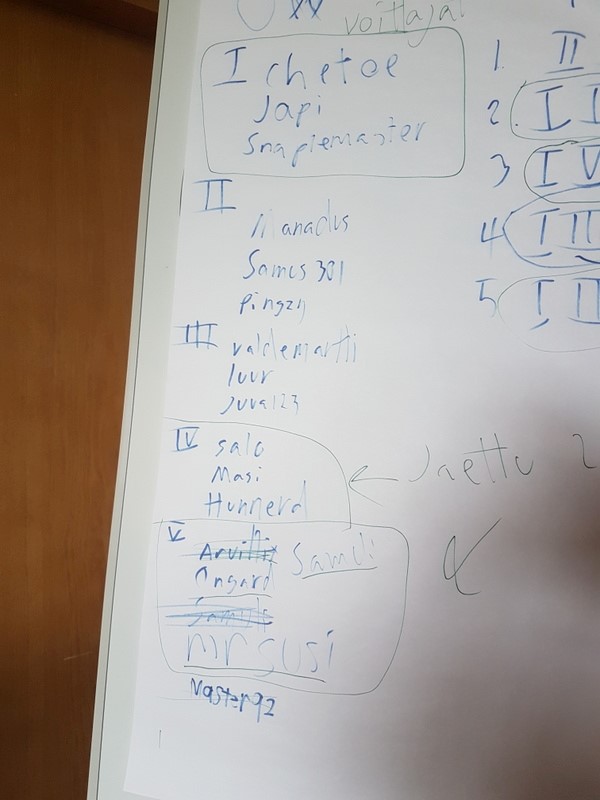 voittaja!
I chetoe
Japi
Snaplemaster
II
Manadus
Samcs 301
pingzn
III valdemartti
luur
Juva123
IV salo
Masi
Hunnerd
Jaettu 2
V
Samuli
Ongard
mrsusi
Master92
1. II
2. I I
3 I V
4 I II
5 I II